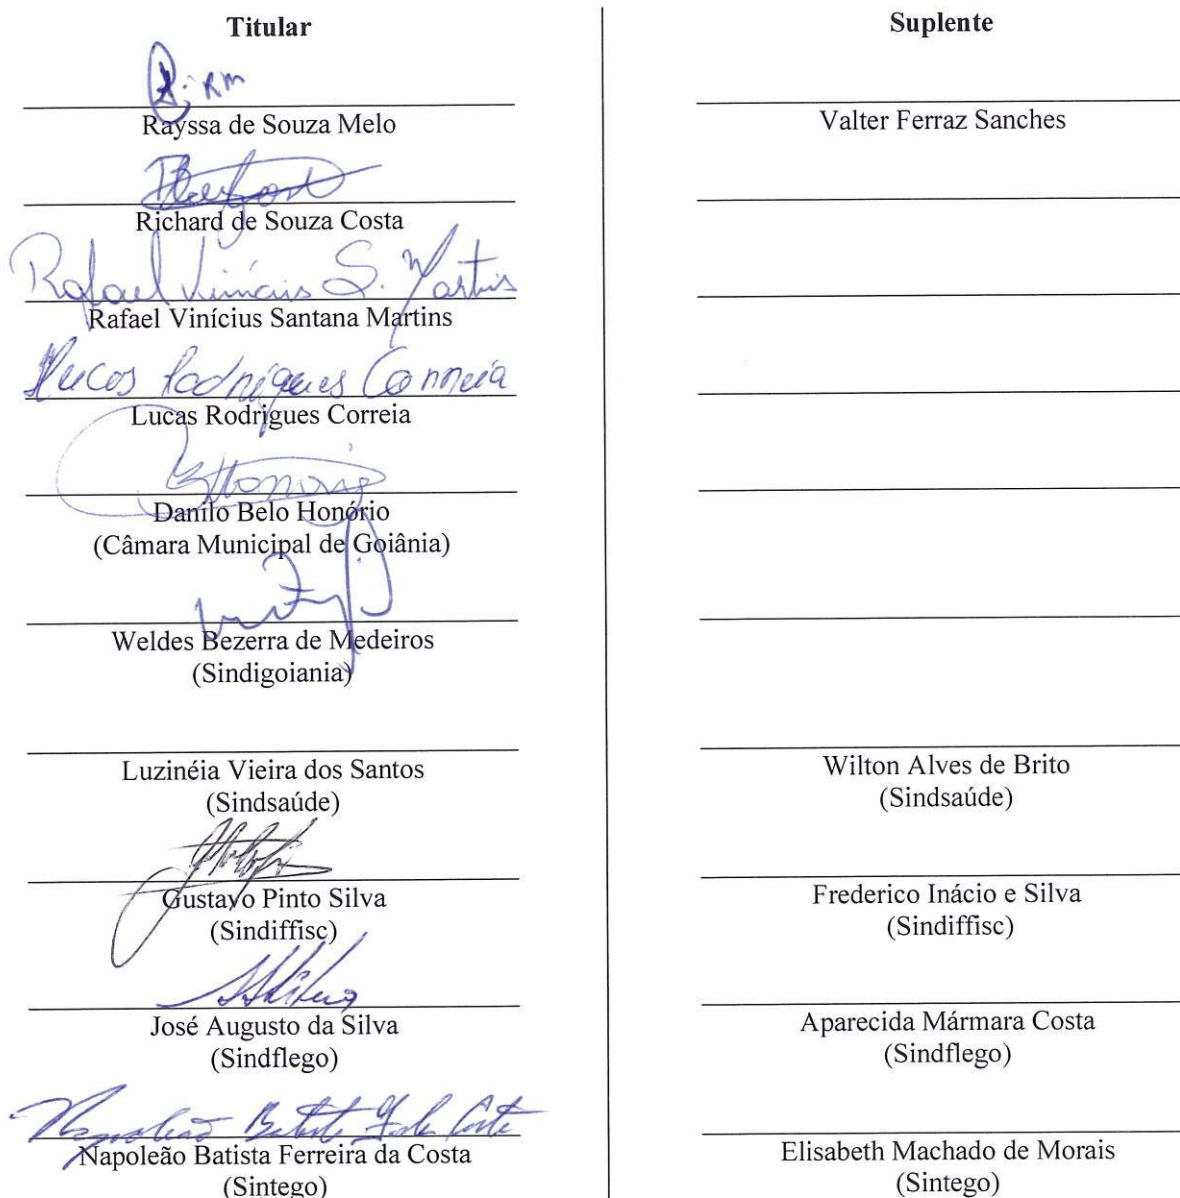 Titular
RM
Rayssa de Souza Melo
Richard de Souza Costa
Rafael Vinícius S. Martins
Rafael Vinícius Santana Martins
Lucas Rodrigues Correia
Lucas Rodrigues Correia
Honório
Danilo Belo Honório
(Câmara Municipal de Goiânia)
Weldes Bezerra de Medeiros
(Sindigoiania)
Luzinéia Vieira dos Santos
(Sindsaúde)
Gustavo Pinto Silva
(Sindiffisc)
José Augusto da Silva
(Sindflego)
Napoleão Batista Costa
Napoleão Batista Ferreira da Costa
(Sintego)
Suplente
Valter Ferraz Sanches
Wilton Alves de Brito
(Sindsaúde)
Frederico Inácio e Silva
(Sindiffisc)
Aparecida Mármara Costa
(Sindflego)
Elisabeth Machado de Morais
(Sintego)